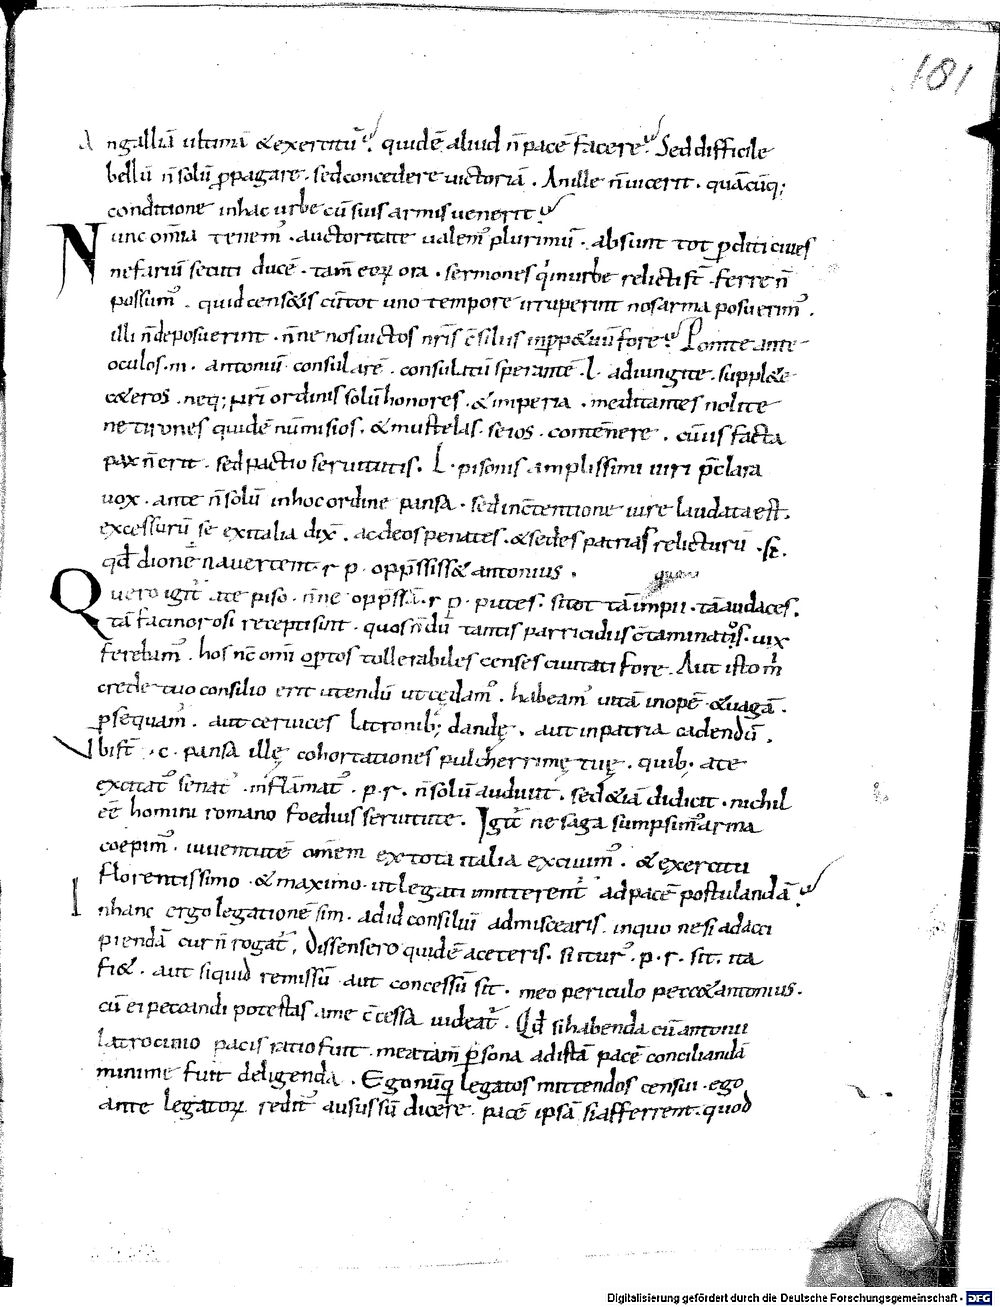 181
An galliā ultimā & exercitū? quidē aliud n̄ pacē facere? Sed difficile
bellū n̄ solū ꝓpagare. sed concedere uictoriā. An ille n̄ uicerit. quācūq;
conditione in hac urbe cū suis armis uenerit?
Nunc om̄ia tenem᾽. auctoritate ualem᾽ plurimū. absunt tot ꝑditi ciues
nefariū secuti ducē. tam̄ eoꝝ ora. sermones q̇ in urbe relicti st̄. ferre n̄
possum᾽. quid cens&is cū tot uno tempore irruperint nos arma posuerim᾽.
illi n̄ deposuerint. n̄ne nos uictos nr̄is c̄siliis inꝑp&uū fore? Ponite ante
oculos. m. antoniū consularē. consulatū sperantē. l. adiungite. suppl&e
c&eros. neq; nr̄i ordinis solū honores. & imperia. meditantes nolite
ne tirones quidē numisios. & mustelas. seios. contēnere. cū iis facta
pax n̄ erit. sed pactio seruitutis. L. pisonis amplissimi uiri p̄clara
uox. a te n̄ solū in hoc ordine pansa. sed in c̄tentione iure laudata est.
excessurū se ex italia dix̄. ac deos penates. & sedes patrias relicturū. s̄.
qd̄ dionē n auertent. r p. opp̄ssiss& antonius.
Quero igit᾽ a te piso. n̄ne opp̄ssā. r p. putes. si tot tā impii. tā audaces.
tā facinorosi recepti sint. quos n̄dū tantis parricidiis c̄taminatos. uix
ferebam᾽. hos nc̄ omī opt̄os tollerabiles censes ciuitati fore. Aut isto m̄
crede tuo consilio erit utendū ut cedam᾽. habeam᾽ uitā inopē & uagā.
ꝑsequam᾽. aut ceruices latronib; dandę. aut in patria cadendū.
Ubi st̄. c. pansa illę cohortationes pulcherrimę tuę. quib; a te
excitat᾽ senat᾽. inflāmat᾽. p. r. n̄ solū audiuit. sed &iā didicit. nichil
eē homini romano foedius seruitute. Igit᾽ ne saga sumpsim᾽ arma
coepim᾽. iuuentutē om̄em ex tota italia exciuim᾽. & exercitu
florentissimo. & maximo. ut legati mitterent᾽ ad pacē postulandā?
In hanc ergo legationē sim. ad id consiliū admiscearis. in quo ne si ad acci
piendā cur n̄ rogat᾽. Dissensero quidē a ceteris. sciturᷤ. p. r. sit. ita
fi&. aut siquid remissū aut concessū sit. meo periculo pecc& antonius.
cū ei peccandi potestas a me c̄cessa uideat᾽. Qd̄ si habenda cū antonii
latrocinio pacis ratio fuit. mea tam̄ ꝑsona ad istā pacē conciliandā
minime fuit deligenda. Ego nūq̄ legatos mittendos censui. ego
ante legatoꝝ reditū ausus sū dicere. pacē ipsā si afferrent. quod
Digitalisierung gefördert durch die Deutsche Forschungsgemeinschaft - DFG